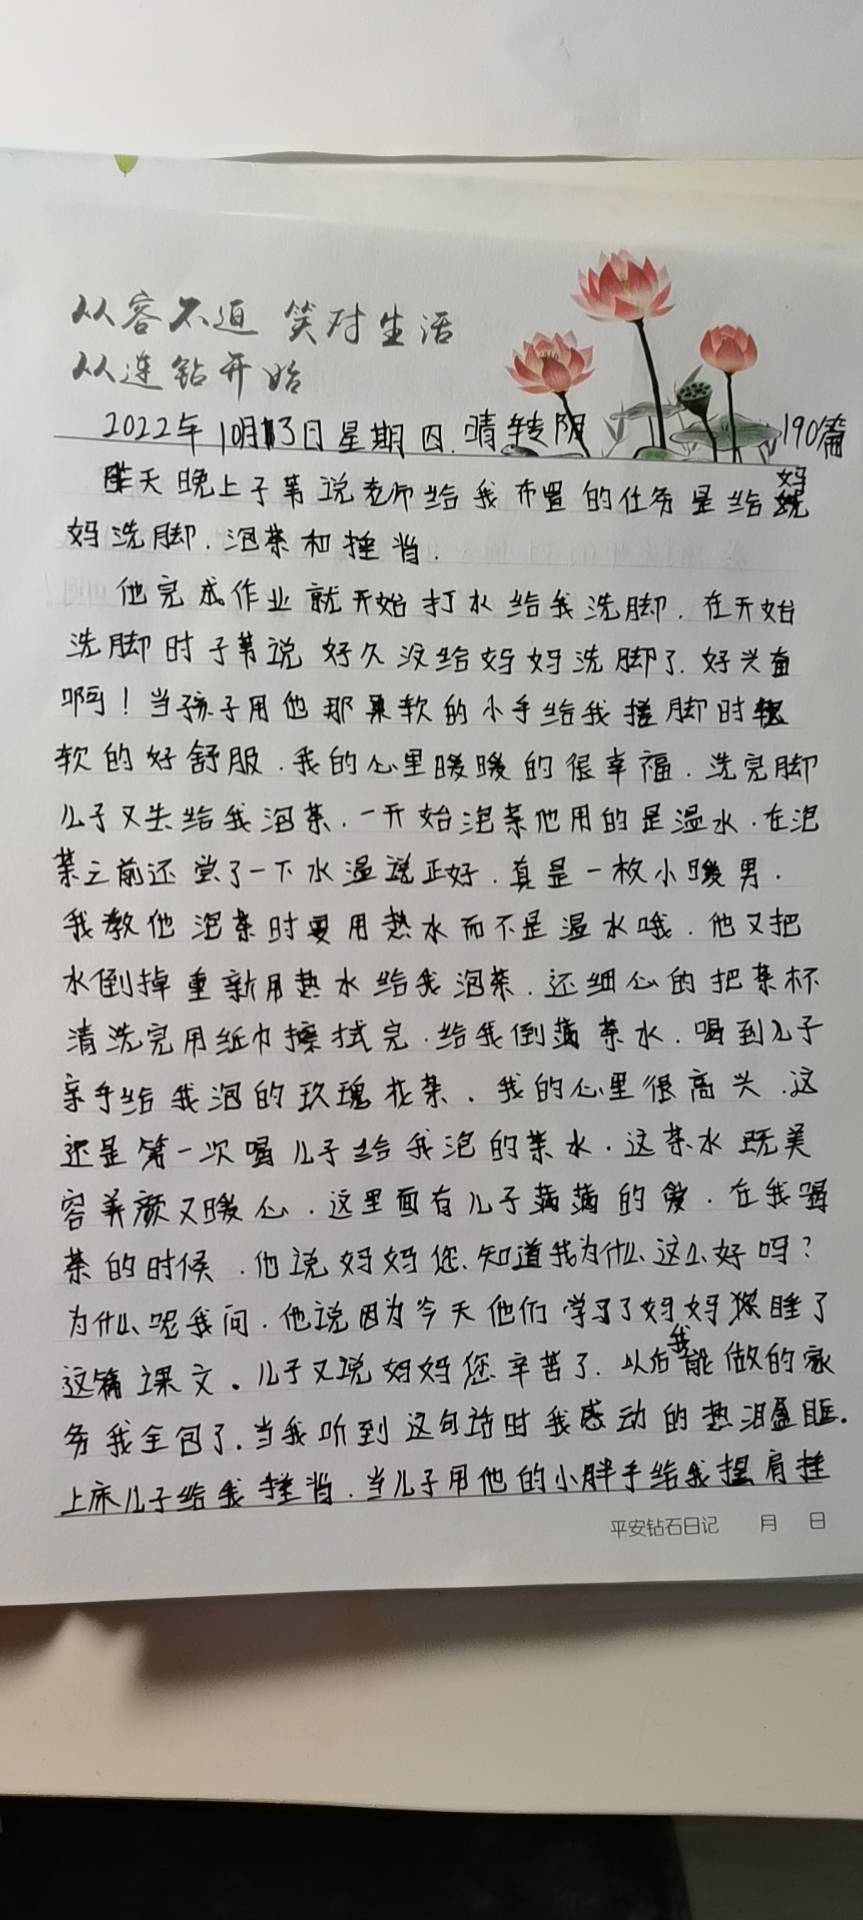 从容不迫 笑对生活
从连钻开始
2022年10月13日星期四.晴转阴 190篇
昨天晚上子苇说老师给我布置的任务是给妈
妈洗脚.泡茶和捶背.
他完成作业就开始打水给我洗脚.在开始
洗脚时子苇说好久没给妈妈洗脚了.好兴奋
啊！当孩子用他那柔软的小手给我搓脚时
软的好舒服.我的心里暖暖的很幸福.洗完脚
儿子又去给我泡茶.一开始泡茶他用的是温水.在泡
茶之前还尝了一下水温说正好.真是一枚小暖男.
我教他泡茶时要用热水而不是温水哦.他又把
水倒掉重新用热水给我泡茶.还细心的把茶杯
清洗完用纸巾擦拭完.给我倒满茶水.喝到儿子
亲手给我泡的玫瑰花茶.我的心里很高兴.这
还是第一次喝儿子给我泡的茶水.这茶水既美
容养颜又暖心.这里面有儿子满满的爱.在我喝
茶的时候.他说妈妈您.知道我为什么这么好吗?
为什么呢我问.他说因为今天他们学习了妈妈睡了
这篇课文。儿子又说妈妈您辛苦了.以后我能做的家
务我全包了.当我听到这句话时我感动的热泪盈眶.
上床儿子给我捶背.当儿子用他的小胖手给我捏肩捶
平安钻石日记 月 日